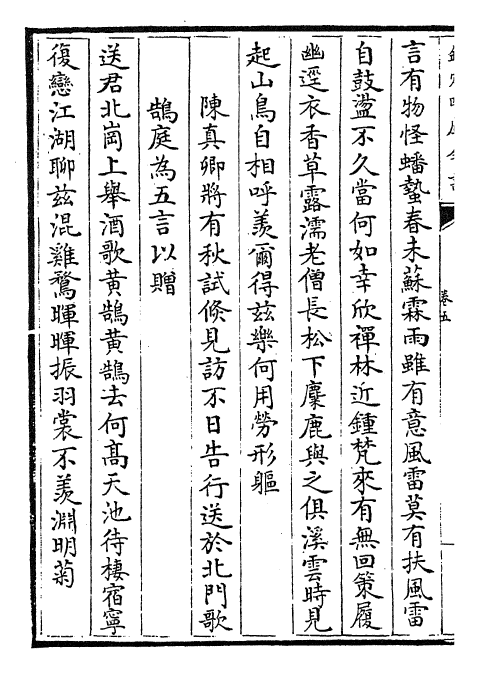 欽定四庫全書
卷五
言有物怪蟠蟄春未蘇霖雨雖有意風雷莫有扶風雷
自鼓盪不久當何如幸欣禪林近鍾梵來有無回策履
幽逕衣香草露濡老僧長松下麋鹿與之俱溪雲時見
起山鳥自相呼羨爾得兹樂何用勞形軀
陳真卿將有秋試倏見訪不日告行送於北門歌
鵠庭為五言以贈
送君北崗上舉酒歌黄鵠黄鵠去何髙天池待棲宿寧
復戀江湖聊兹混雞鶩暉暉振羽裳不羨淵明菊